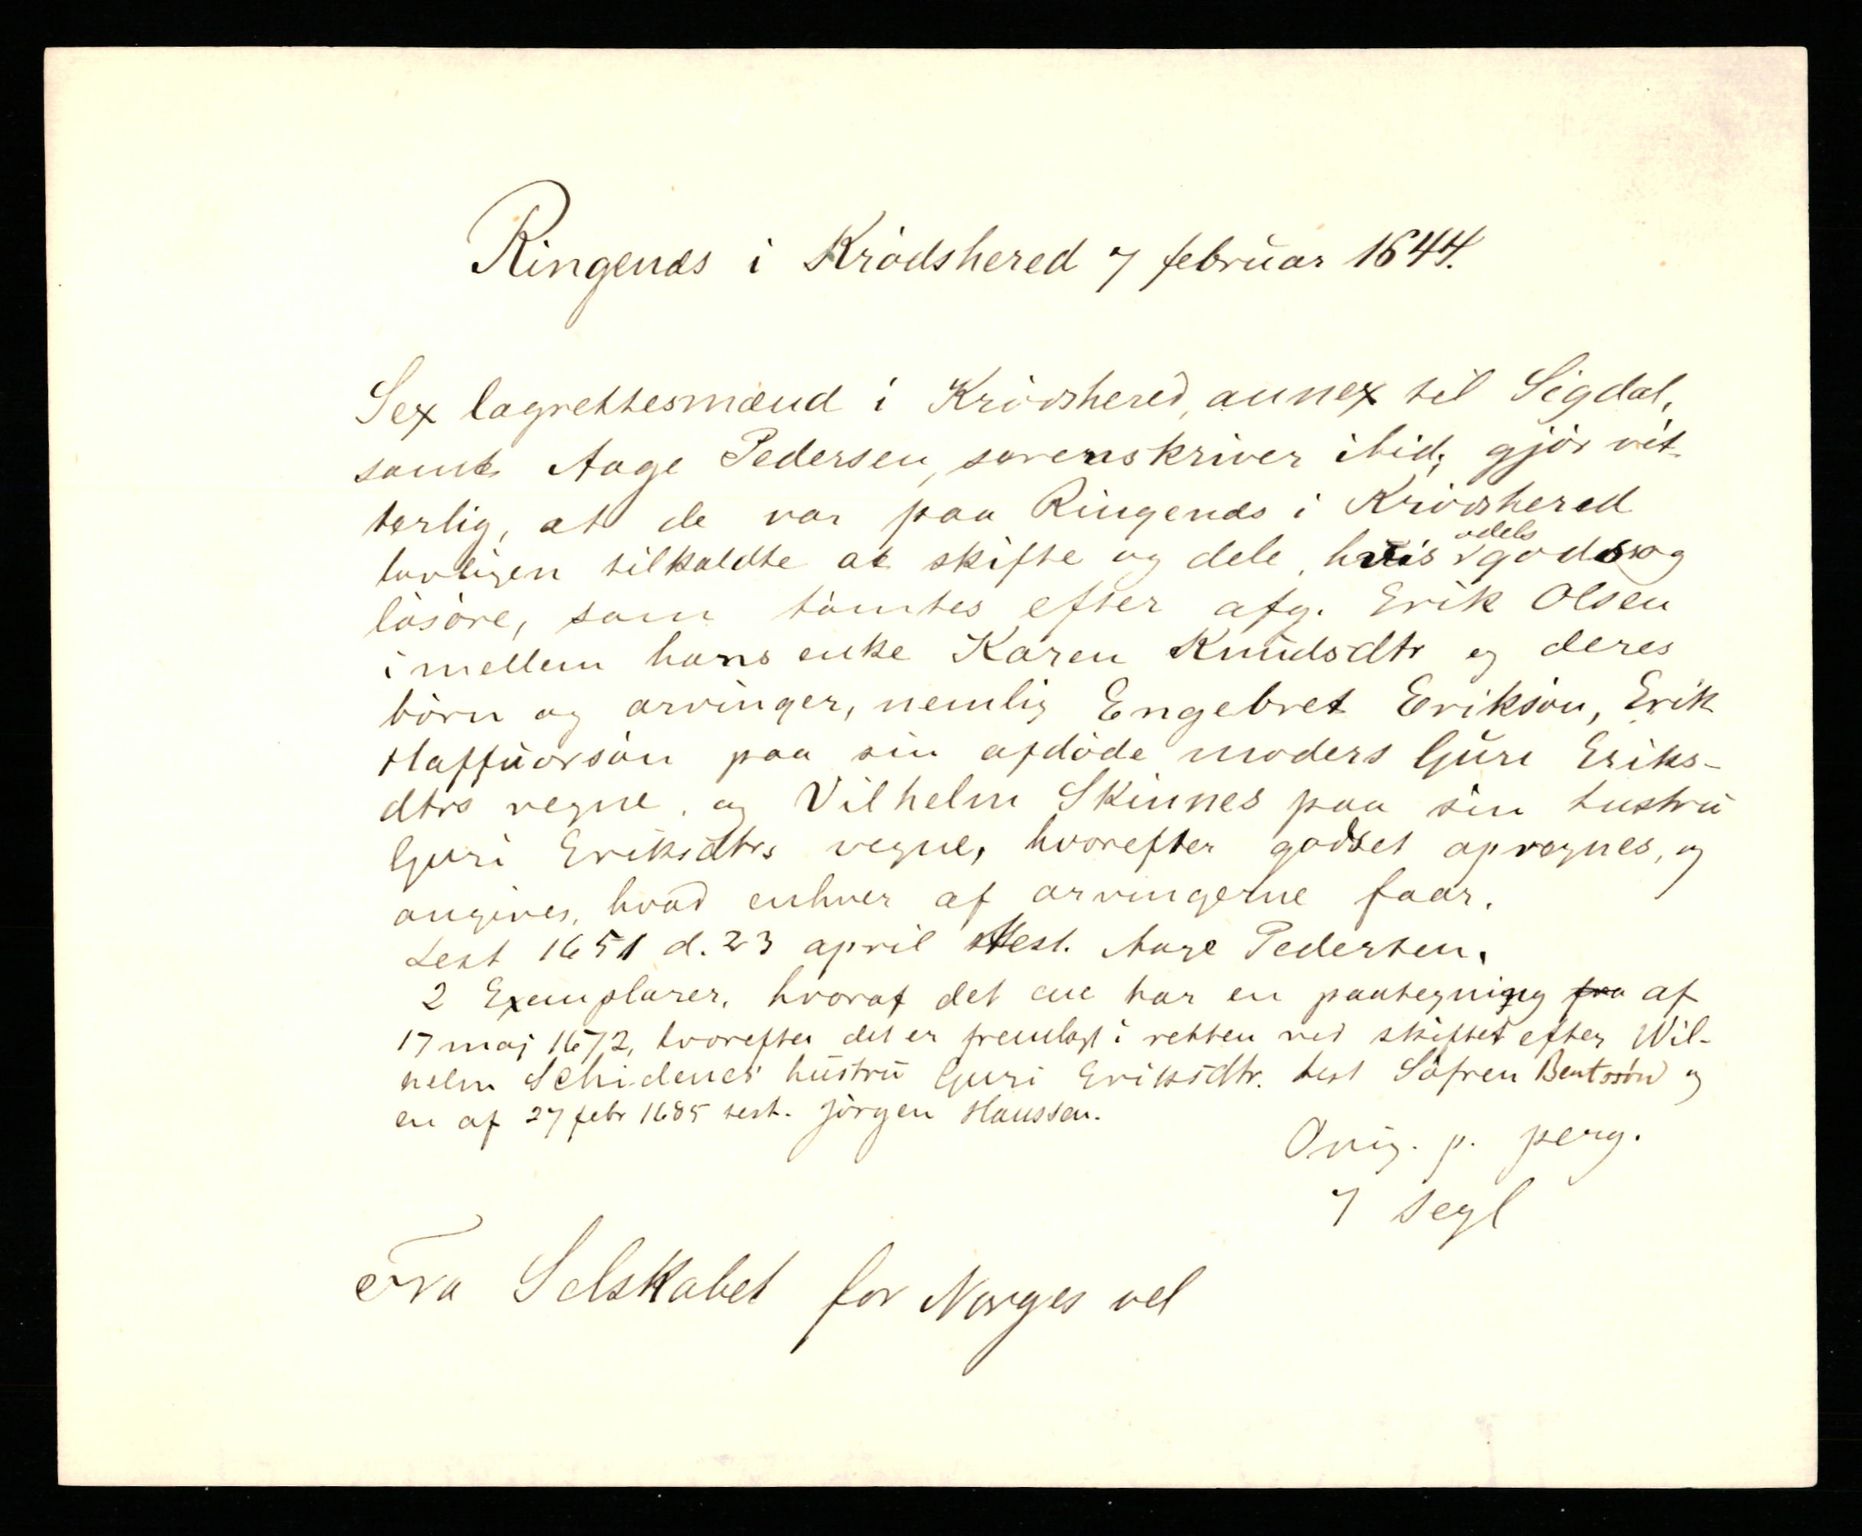 Ringenæs i Krødshered 7 februar 1644.
Sex lagrettesmænd i Krødshered, annex til Sigdal,
samt Aage Pedersen, sorenskriver ibid, gjør vit-
terlig, at de var paa Ringenæs i Krødshered
lovligen tilkaldte at skifte og dele, hvis odels gods og
løsøre, som fantes efter afg. Erik Olsen
imellem hans enke Karen Knudsdtr og deres
børn og arvinger, nemlig Engebret Erikson, Erik
Haffuorsøn paa sin afdøde moders Guri Eriks-
dtrs vegne, og Vilhelm Skinnes paa sin hustru
Guri Eriksdtrs vegne, hvorefter godset opregnes, og
angives, hvad enhver af arvingerne faar.
Lest 1651 d. 23 april test. Aage Pedersen.
2 Exemplarer, hvoraf det ene har en paategning fra af
17 maj 1672, hvorefter det er fremlagt i retten ved skiftet efter Wil-
helm Schidenes hustru Guri Eriksdtr. test Søfren Bentssøn og
en af 27 febr 1685 test. Jørgen Hanssen.
Orig. p. perg.
7 segl
Fra Selskabet for Norges vel